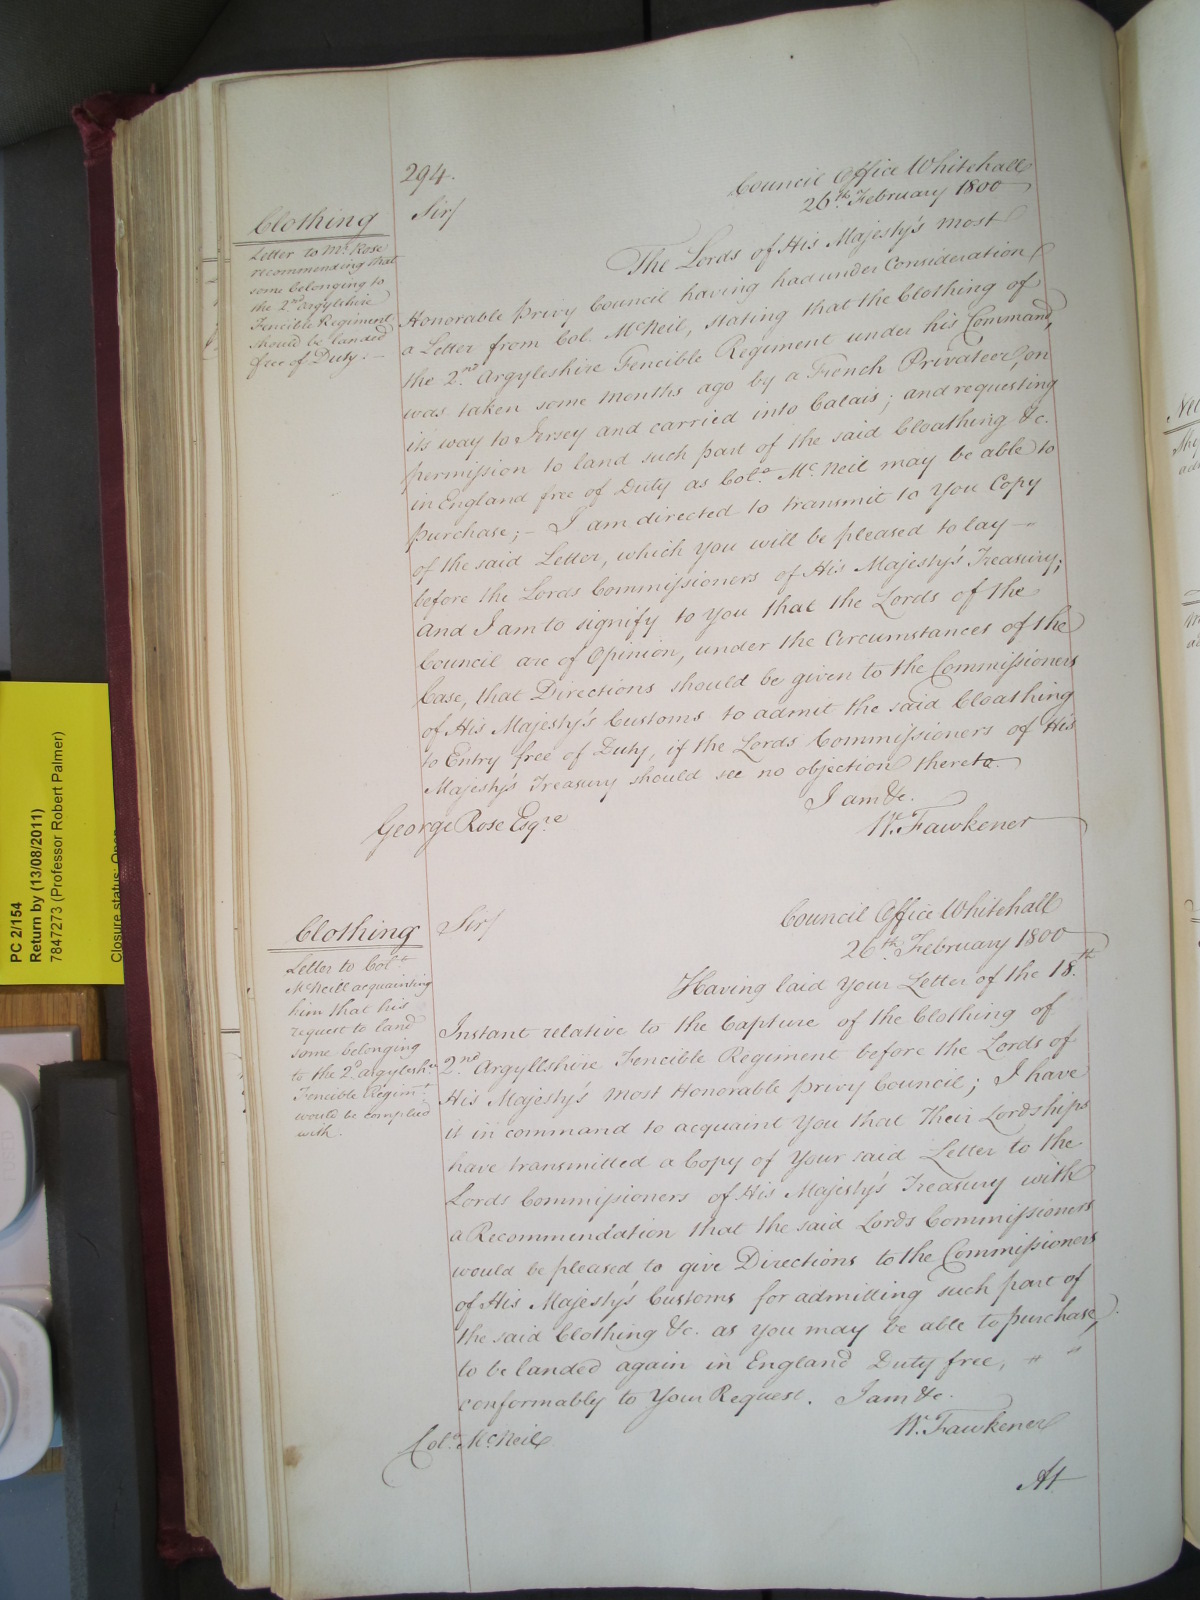 294.
Council Office Whitehall
26th February 1800
Sir/
Clothing
Letter to Mr. Rose
recommending that
some belonging to
the 2nd Argylshire
Fencible Regiment
should be landed
free of Duty. —
The Lords of His Majesty's most
Honorable Privy Council having had under Consideration
a Letter from Col. McNeil, stating that the Clothing of
the 2nd Argyleshire Fencible Regiment under his Command,
was taken some months ago by a French Privateer, on
its way to Jersey and carried into Calais; and requesting
permission to land such part of the said Cloathing &c.
in England free of Duty as Colo. McNeil may be able to
purchase; — I am directed to transmit to You Copy
of the said Letter, which you will be pleased to lay —
before the Lords Commissioners of His Majesty's Treasury;
and I am to signify to You that the Lords of the
Council are of Opinion, under the Circumstances of the
Case, that Directions should be given to the Commissioners
of His Majesty's Customs to admit the said Cloathing
to Entry free of Duty, if the Lords Commissioners of His
Majesty's Treasury should see no objection thereto.
I am &c.
George Rose Esqre
W. Fawkener
Council Office Whitehall
26th February 1800
Sir/
Clothing
Letter to Colo.
McNeill acquainting
him that his
request to land
some belonging
to the 2d. Argylesh.
Fencible Regimt.
would be complied
with.
Having laid Your Letter of the 18th
Instant relative to the Capture of the Clothing of
2nd Argyllshire Fencible Regiment before the Lords of
His Majesty's most Honorable Privy Council; I have
it in command to acquaint You that Their Lordships
have transmitted a Copy of Your said Letter to the
Lords Commissioners of His Majesty's Treasury with
a Recommendation that the said Lords Commissioners
would be pleased to give Directions to the Commissioners
of His Majesty's Customs for admitting such part of
the said Clothing &c. as You may be able to purchase,
to be landed again in England Duty free, " "
conformably to Your Request. I am &c.
Colo. McNeil
W. Fawkener
At
PC 2/154
Return by (13/08/2011)
7847273 (Professor Robert Palmer)
Closure status: Open